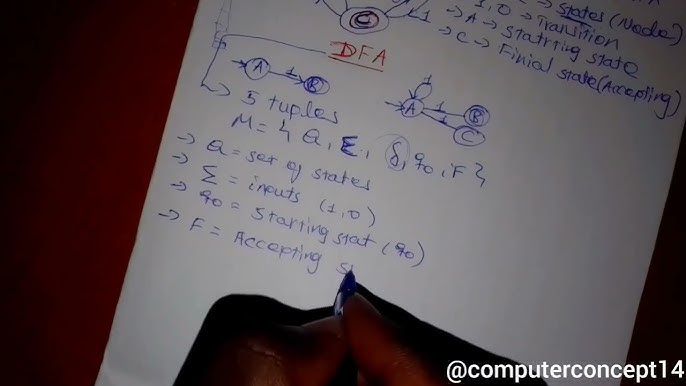 states (Node)
1, 0 → Transition
→ A → Statrting state
→ C → Finial state (Accepting)
C
1
DFA
A 1 B
1
A 1 B
1 C
→ 5 tuples
M = { Q, Σ, δ, q0, F }
→ Q = set of states
→ Σ = inputs (1, 0)
→ q0 = Starting stat (q0)
→ F = Accepting s
@computerconcept14